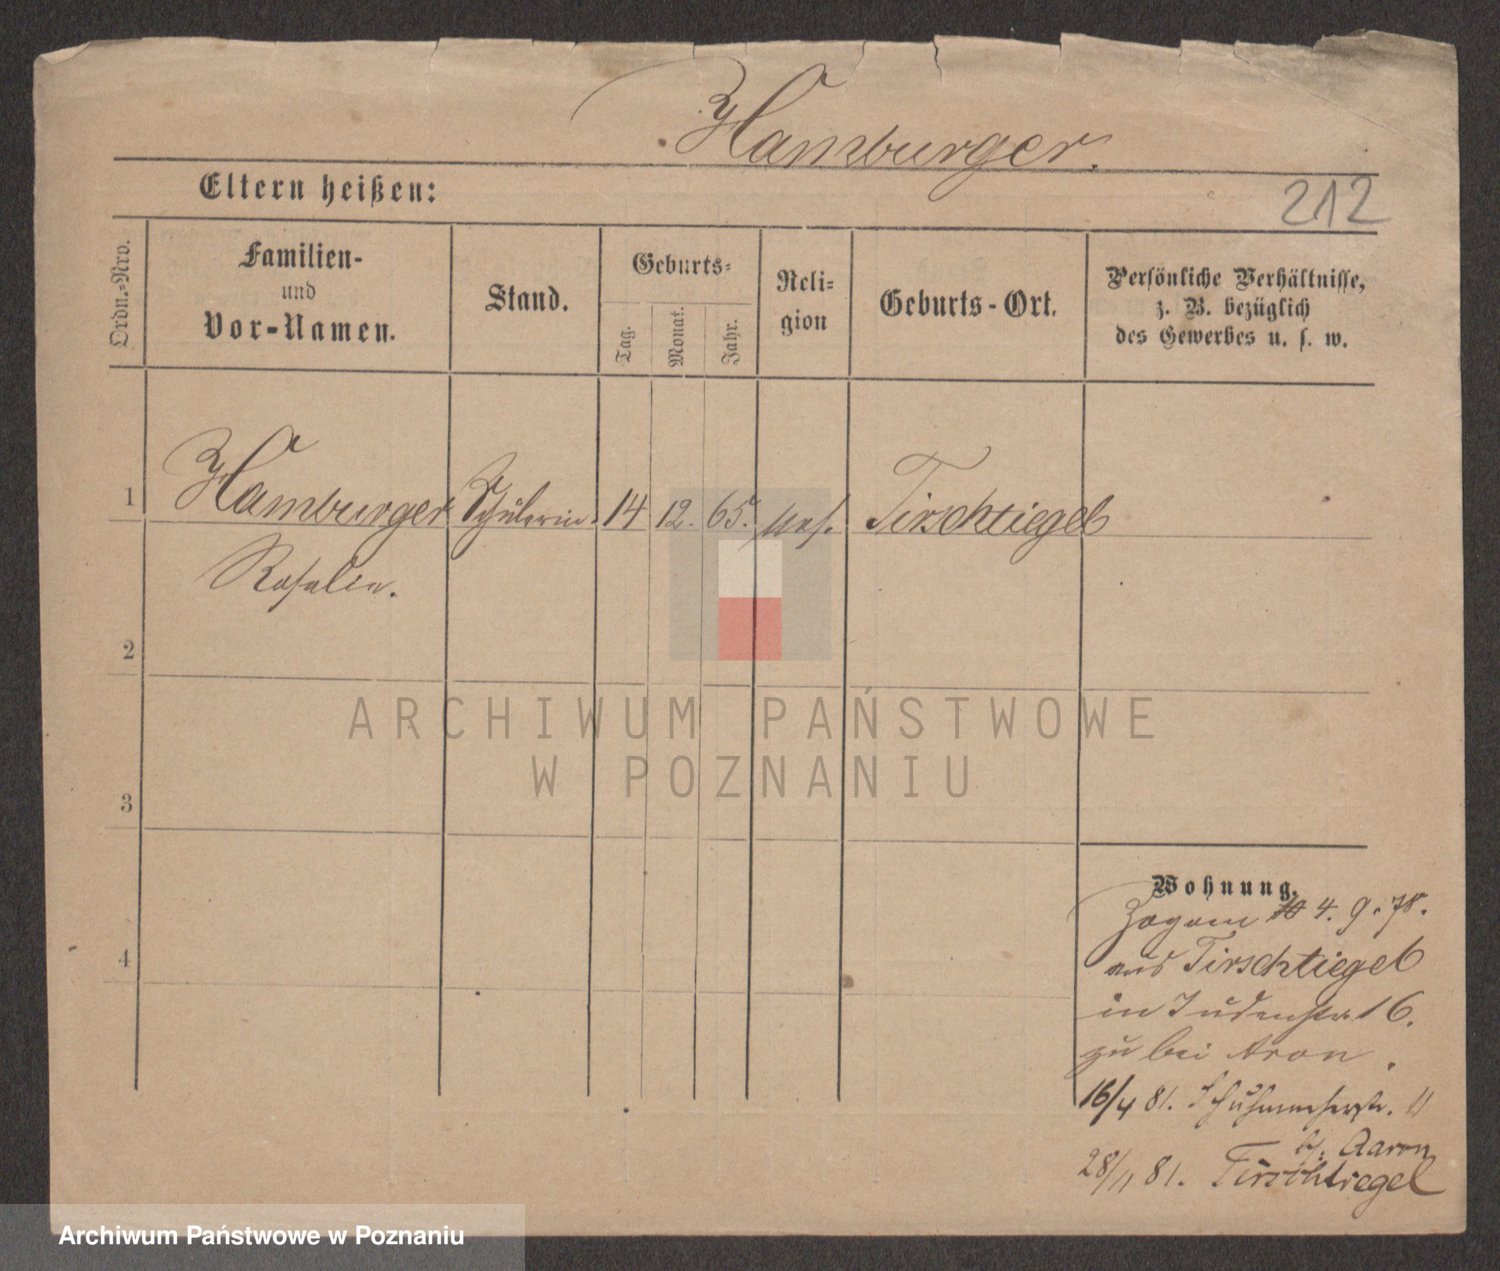 Hamburger.
Eltern heißen:
212
Ordn.-Nro.
Familien-
und
Vor-Namen.
Stand.
Geburts-
Tag.
Monat.
Jahr.
Reli-
gion
Geburts-Ort.
Persönliche Verhältnisse,
z. B. bezüglich
des Gewerbes u. s. w.
1 Hamburger Schülerin 14 12. 65. mos. Tirschtiegel
Rosalie.
2
ARCHIWUM PAŃSTWOWE
W POZNANIU
3
4
Wohnung.
Zogam 4. 9. 78.
aus Tirschtiegel
in Judenstr. 16.
zu bei Aron.
16/4 81. Schuhmacherstr. 11
b. Aaron
28/11 81. Tirschtiegel
Archiwum Państwowe w Poznaniu